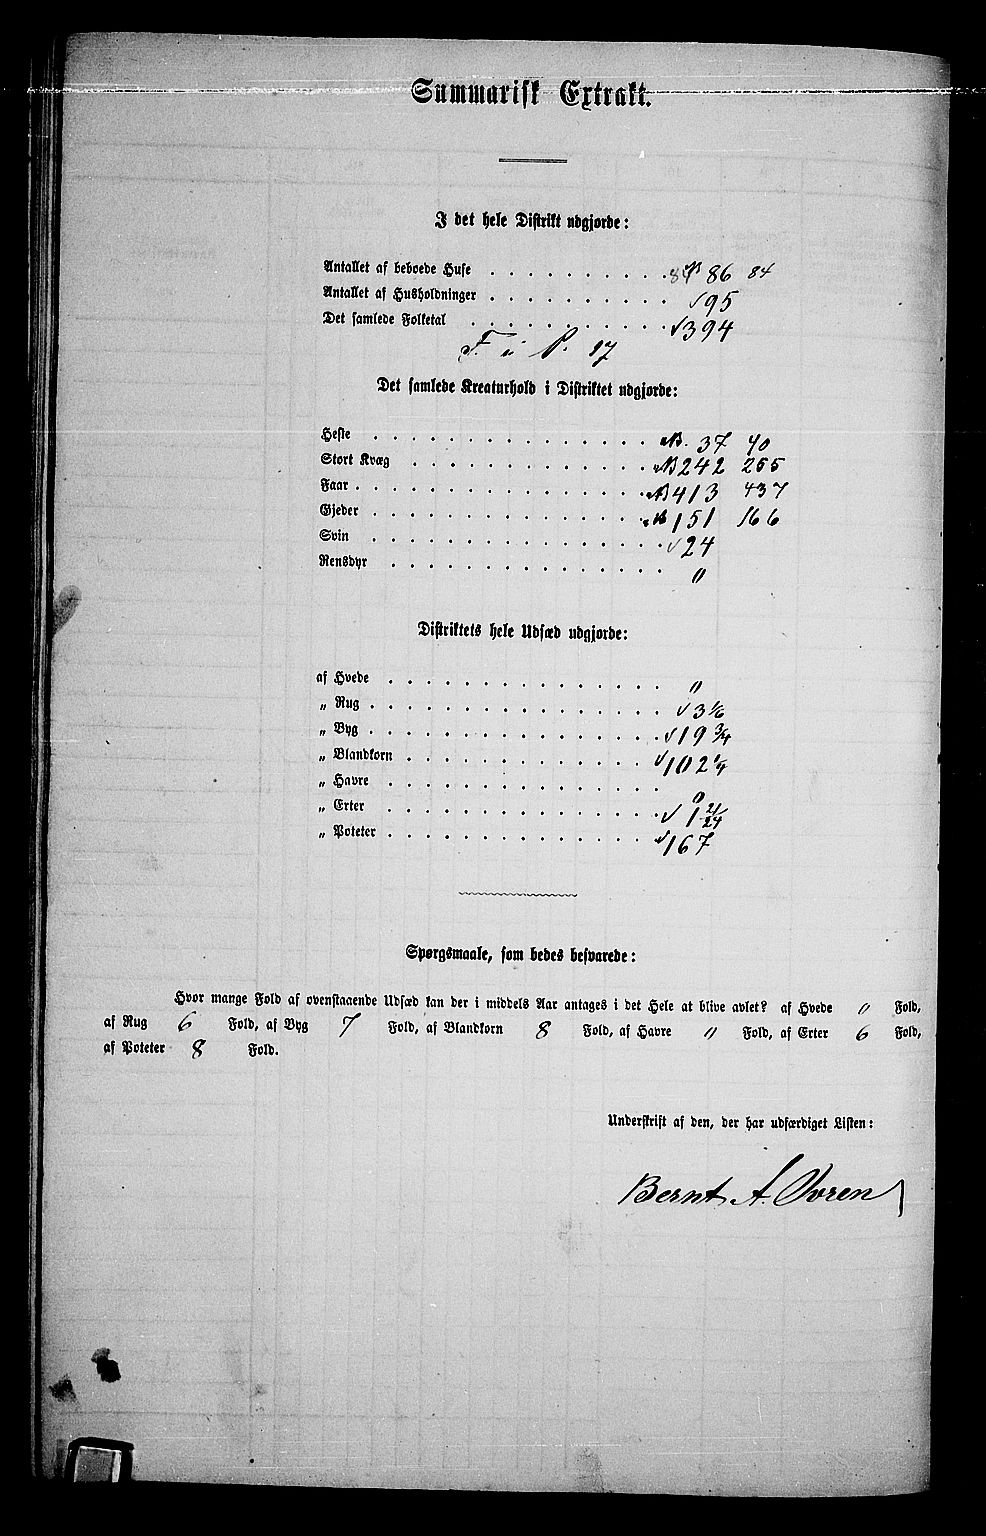 Summarisk Extrakt.
I det hele Distrikt udgjorde:
Antallet af beboede Huse . . . . . . . . . . 86 84
Antallet af Husholdninger . . . . . . . . . . √95
Det samlede Folketal . . . . . . . . . . . √394
F. i P. 17
Det samlede Kreaturhold i Distriktet udgjorde:
Heste . . . . . . . . . . . . . . . NB. 37 40
Stort Kvæg . . . . . . . . . . . . . NB 242 255
Faar . . . . . . . . . . . . . . . . NB 413 437
Gjeder . . . . . . . . . . . . . . . NB 151 166
Svin . . . . . . . . . . . . . . . . √ 24
Rensdyr . . . . . . . . . . . . . . . "
Distriktets hele Udsæd udgjorde:
af Hvede . . . . . . . . . . . . . . . "
„ Rug . . . . . . . . . . . . . . . . √3 1/6
„ Byg . . . . . . . . . . . . . . . . √19 3/4
„ Blandkorn . . . . . . . . . . . . . √102 1/4
„ Havre . . . . . . . . . . . . . . . "
„ Erter . . . . . . . . . . . . . . . √ 1 21/24
„ Poteter . . . . . . . . . . . . . . √167
Spørgsmaale, som bedes besvarede:
Hvor mange Fold af ovenstaaende Udsæd kan der i middels Aar antages i det Hele at blive avlet? af Hvede " Fold,
af Rug 6 Fold, af Byg 7 Fold, af Blandkorn 8 Fold, af Havre " Fold, af Erter 6 Fold,
af Poteter 8 Fold.
Underskrift af den, der har udfærdiget Listen:
Bernt A. Øvren